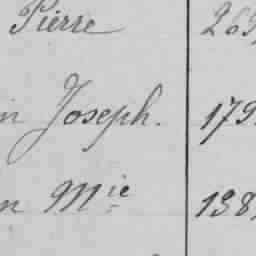 Pierre 269
n Joseph. 179
n Mie 138